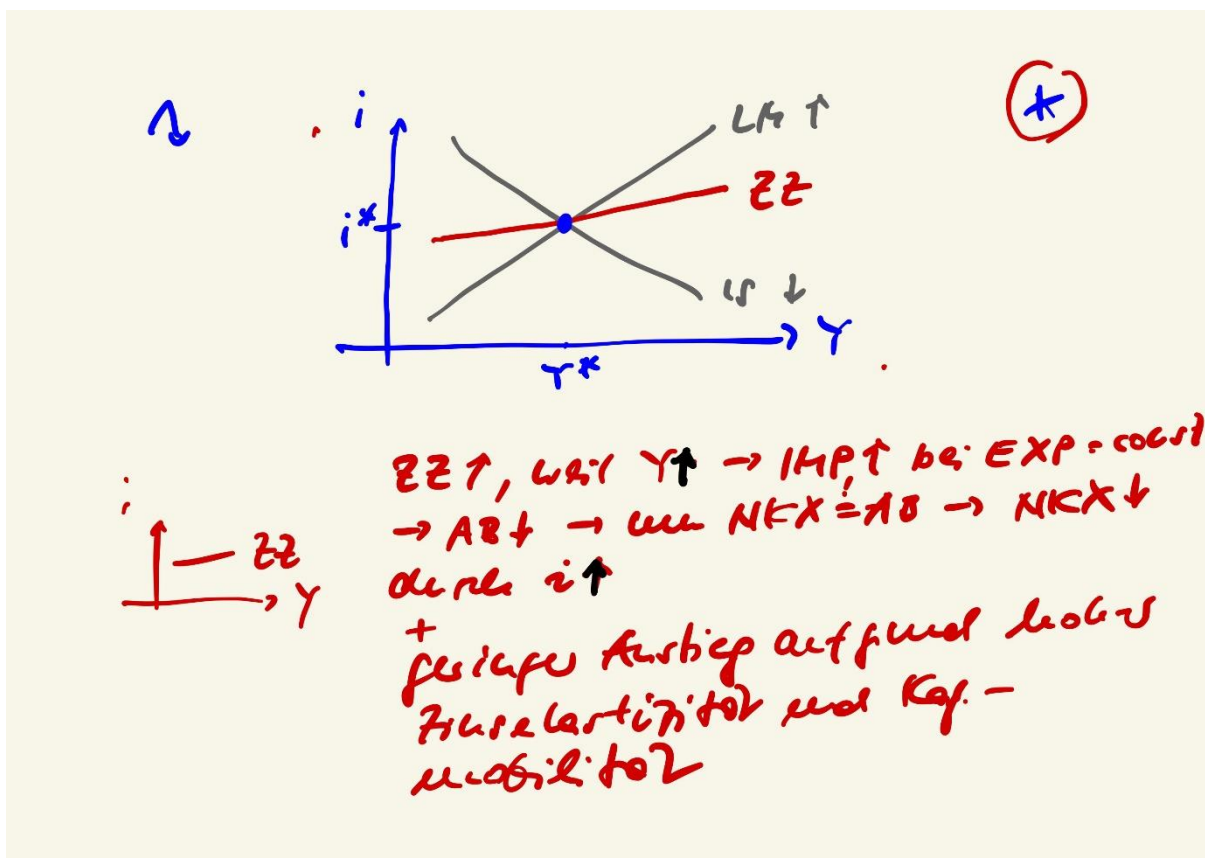 i
LM ↑
*
ZZ
i*
IS ↓
Y
Y*
ZZ↑, weil Y↑ → IMP↑ bei EXP = const
→ AB↓ → wenn NKX != AB → NKX↓
durch i↑
+
geringer Anstieg aufgrund hoher
Zinselastizität und Kap.-
mobilität
i
ZZ
Y